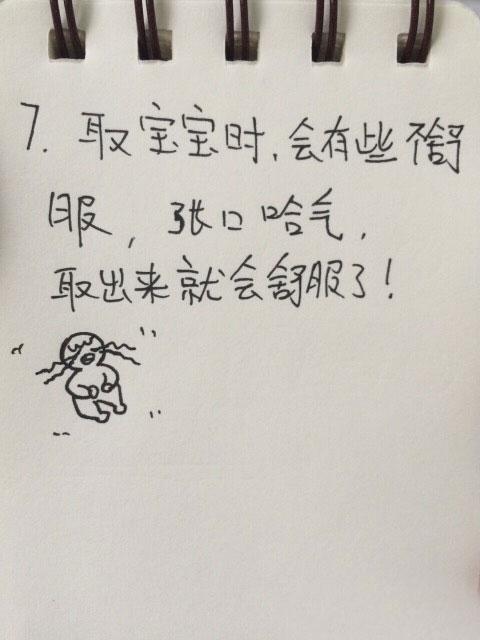 7. 取宝宝时,会有些不舒
服,张口哈气,
取出来就会舒服了!